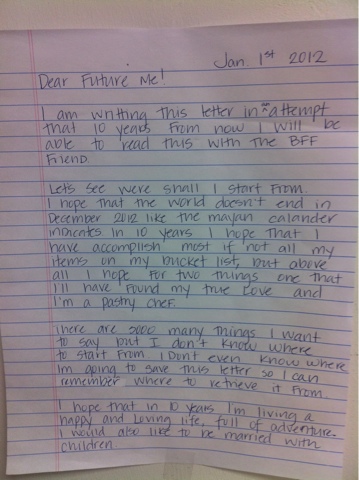 Jan 1st 2012
Dear Future Me!
I am writting this letter in an attempt
that 10 years from now I will be
able to read this with the BFF
Friend.
Let's see were shall I start From.
I hope that the world doesn't end in
December 2012 like the mayan calander
indicates In 10 years I hope that I
have accomplish most if not all my
items on my bucket list, but above
all I hope For two things one that
I'll have Found my true love and
I'm a pastry chef.
There are sooo many things I want
to say but I don't know where
to start From. I Don't even know where
Im going to save this letter so I can
remember where to retrieve it From.
I hope that in 10 years I'm living a
happy and Loving life, full of adventure.
I would also like to be married with
children.